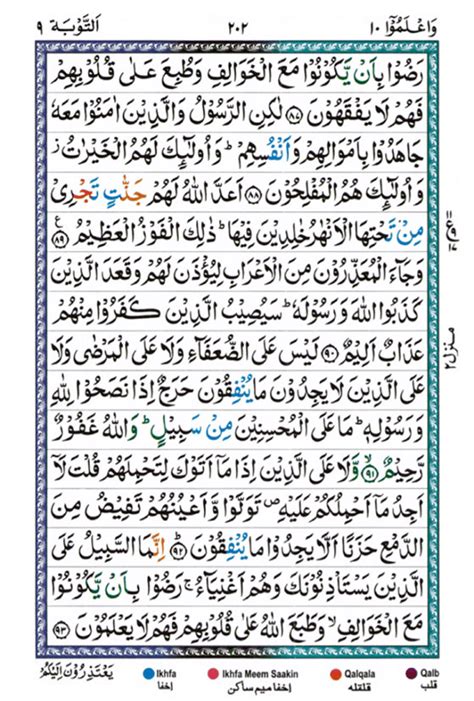 وَاعْلَمُوْٓا ١٠ ٢٠٢ اَلتَّوْبَة ٩
رَضُوْا بِاَنْ يَّكُوْنُوْا مَعَ الْخَوَالِفِ وَطُبِعَ عَلٰى قُلُوْبِهِمْ
فَهُمْ لَا يَفْقَهُوْنَ ﴿٨٧﴾ لٰكِنِ الرَّسُوْلُ وَالَّذِيْنَ اٰمَنُوْا مَعَهٗ
جَاهَدُوْا بِاَمْوَالِهِمْ وَاَنْفُسِهِمْ ؕ وَاُولٰٓئِكَ لَهُمُ الْخَيْرٰتُ ز
وَاُولٰٓئِكَ هُمُ الْمُفْلِحُوْنَ ﴿٨٨﴾ اَعَدَّ اللّٰهُ لَهُمْ جَنّٰتٍ تَجْرِىْ
مِنْ تَحْتِهَا الْاَنْهٰرُ خٰلِدِيْنَ فِيْهَا ؕ ذٰلِكَ الْفَوْزُ الْعَظِيْمُ ﴿٨٩﴾ ع
وَجَآءَ الْمُعَذِّرُوْنَ مِنَ الْاَعْرَابِ لِيُؤْذَنَ لَهُمْ وَقَعَدَ الَّذِيْنَ
كَذَبُوا اللّٰهَ وَرَسُوْلَهٗ ؕ سَيُصِيْبُ الَّذِيْنَ كَفَرُوْا مِنْهُمْ
عَذَابٌ اَلِيْمٌ ﴿٩٠﴾ لَيْسَ عَلَى الضُّعَفَآءِ وَلَا عَلَى الْمَرْضٰى وَلَا
عَلَى الَّذِيْنَ لَا يَجِدُوْنَ مَا يُنْفِقُوْنَ حَرَجٌ اِذَا نَصَحُوْا لِلّٰهِ
وَرَسُوْلِهٖ ؕ مَا عَلَى الْمُحْسِنِيْنَ مِنْ سَبِيْلٍ ؕ وَاللّٰهُ غَفُوْرٌ
رَّحِيْمٌ ﴿٩١﴾ وَّلَا عَلَى الَّذِيْنَ اِذَا مَآ اَتَوْكَ لِتَحْمِلَهُمْ قُلْتَ لَآ
اَجِدُ مَآ اَحْمِلُكُمْ عَلَيْهِ ص تَوَلَّوْا وَّاَعْيُنُهُمْ تَفِيْضُ مِنَ
الدَّمْعِ حَزَنًا اَلَّا يَجِدُوْا مَا يُنْفِقُوْنَ ﴿٩٢﴾ اِنَّمَا السَّبِيْلُ عَلَى
الَّذِيْنَ يَسْتَاْذِنُوْنَكَ وَهُمْ اَغْنِيَآءُ ۚ رَضُوْا بِاَنْ يَّكُوْنُوْا
مَعَ الْخَوَالِفِ ۙ وَطَبَعَ اللّٰهُ عَلٰى قُلُوْبِهِمْ فَهُمْ لَا يَعْلَمُوْنَ ﴿٩٣﴾
منزل ٢
يَعْتَذِرُوْنَ اِلَيْكُمْ Ikhfa Ikhfa Meem Saakin Qalqala Qalb
اخفا اخفا ميم ساكن قلقله قلب